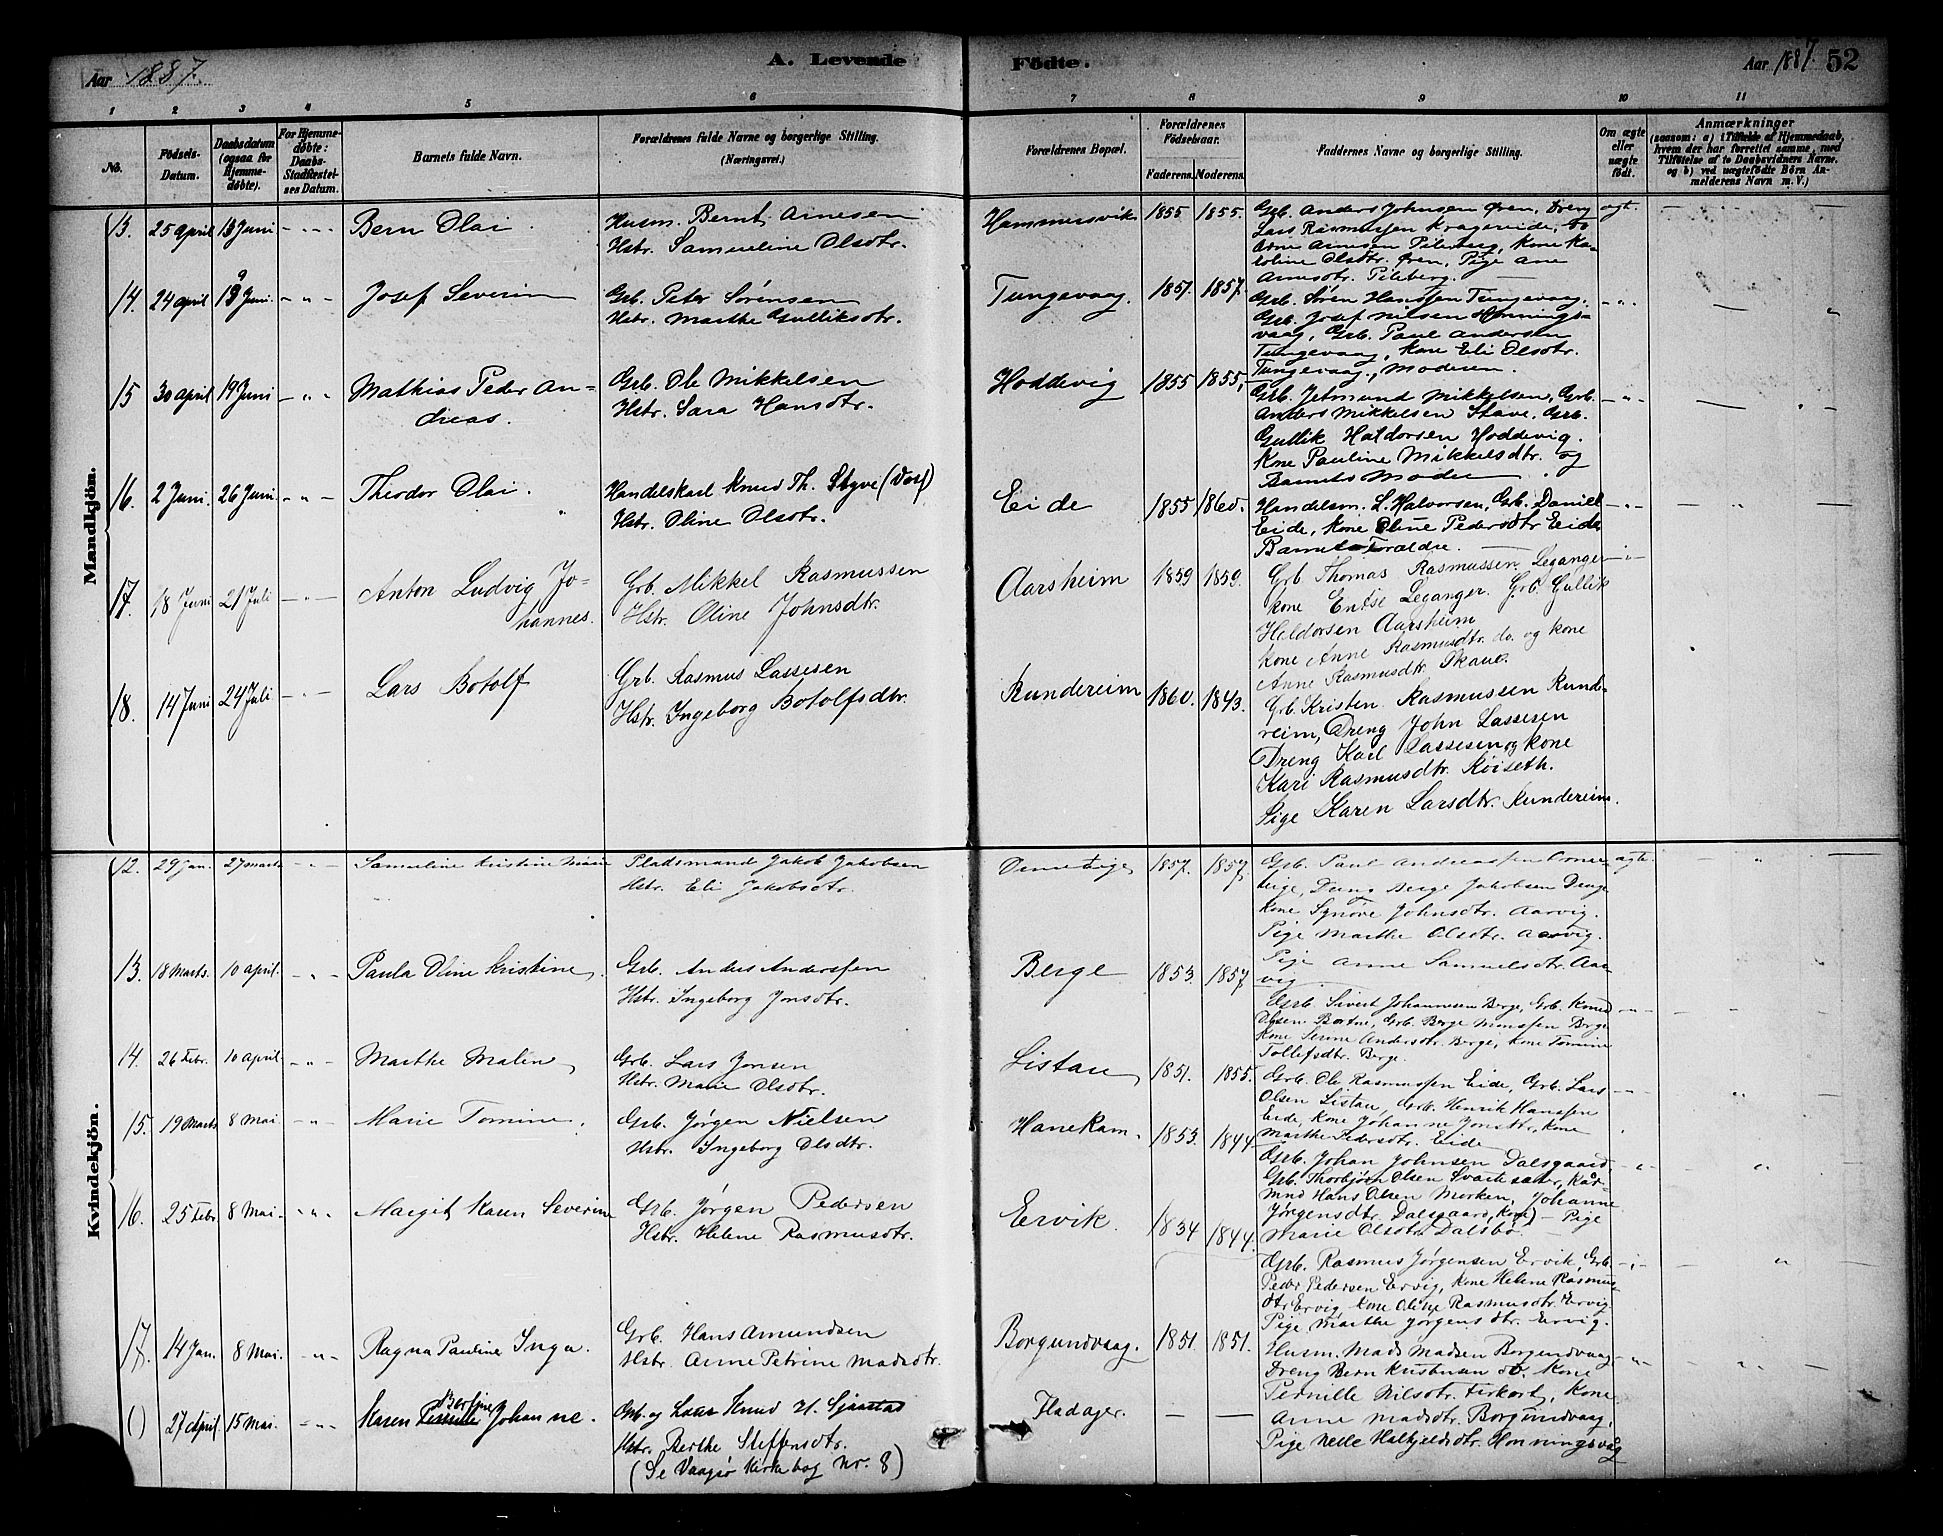 Aar 1887.
A. Levende
Födte.
Aar 1887. 52
1 2 3 4 5 6 7 8 9 10 11
No.
Födsels-Datum.
Daabsdatum (ogsaa for Hjemme-döbte).
For Hjemme-döbte: Daabs-Stadfæstel-ses Datum.
Barnets fulde Navn.
Forældrenes fulde Navne og borgerlige Stilling.
(Næringsvei.)
Forældrenes Bopæl.
Forældrenes Födselsaar.
Faderens. Moderens.
Faddernes Navne og borgerlige Stilling.
Om ægte eller uægte födt.
Anmærkninger
(saasom: a) i Tilfælde af Hjemmedaab, hvem der har forrettet samme, med Tilföielse af to Daabsvidners Navne, og b) ved uægtefödte Börn An-melderens Navn m. V.)
Mandkjön.
13. 25 april 13 Juni - " - Bern Olai. Husm. Bernt Arnesen Hammersvik 1855 1855. Grb. Anders Johnsen Øren, Dreng ægt.
Hstr. Samueline Olsdtr. Lars Rasmussen Krageneide,
Arne Arnesen Pileberg, Kone Ka-
roline Olsdtr. Øren, Pige Ane
Arnesdtr. Pileberg.
14. 24 april 19 Juni. - " - Josef Severin Grb. Peter Sørensen Tungevaag. 1857. 1857. Grb. Søren Hanssen Tungevaag. - " -
Hstr. Marthe Gulliksdtr. Grb. Josef Nilsen Honnings-
vaag, Grb. Paul Andersen
Tungevaag, Kone Eli Olsdtr.
Tungevaag, Moderen.
15 30 april 19 Juni - " - Mathias Peder An- Grb. Ole Mikkelsen Hoddevig 1855 1855, Grb. Jetmund Mikkelsen, Grb. - " -
dreas. Hstr. Sara Hansdtr. Anders Mikkelsen Stave, Grb.
Gullik Haldorsen Hoddevig.
Kone Pauline Mikkelsdtr. og
Barnets Moder
16. 2 Juni. 26 Juni. - " - Theodor Olai. Handelskarl Knud Th. Styve (Død) Eide 1855 1860. Handelsm. L. Halvorsen, Grb. Daniel - " -
Hstr. Oline Olsdtr. Eide, Kone Oline Pedersdtr Eide
Barnets Forældre.
17. 18 Juni 21 Juli - " - Anton Ludvig Jo- Grb. Mikkel Rasmussen Aarsheim 1859 1859. Grb Thomas Rasmussen Leganger - " -
hannes. Hstr. Oline Johnsdtr. Kone Leganger. Grb. Gullik
Haldorsen Aarsheim
Kone Anne Rasmusdtr. do. og Kone
Anne Rasmusdtr
18. 14 Juni 24 Juli - " - Lars Botolf Grb. Rasmus Lassesen Rundereim 1860. 1843. Grb. Kristen Rasmussen Runde-
Hstr. Ingeborg Botolfsdtr. reim, Dreng John Lassesen
Dreng Karl Lassesen og Kone
Kari Rasmusdtr. Røiseth.
Pige Karen Larsdtr. Rundereim.
Kvindekjön.
12. 29 Jan. 27 Marts - " - Samueline Kristine Marie Pladsmand Jakob Jakobsen 1857. 1857, Grb. Paul Andreassen ægte.
Hstr. Eli Jakobsdtr. Berge Jakobsen
Kone Synøve Johnsdtr. Aarvig.
Pige Marthe Olsdtr. Aarvig.
Pige Anne Samuelsdtr. Aar-
vig
13. 18 Marts. 10 April. - " - Paula Oline Kristine, Grb. Anders Anderssen Berge 1853. 1857 Grb. Sivert Johannesen Berge, Grb. Knud - " -
Hstr. Ingeborg Jonsdtr. Olsen Bortne, Grb. Berge Monssen Berge
Kone Serine Andersdtr. Berge, Kone Tomine
Tollefsdtr. Berge.
14. 26 Febr. 10 April. - " - Marthe Malin, Grb. Lars Jonsen Listau, 1851. 1855. Grb. Ole Rasmussen Eide, Grb. Lars
Hstr. Marie Olsdtr. Olsen Listau, Grb. Henrik Hanssen
Eide, Kone Johanne Jonsdtr., Kone
Marthe Pedersdtr. Eide
15. 19 Marts 8 Mai. - " - Marie Tomine. Grb. Jørgen Nielsen Hanekam. 1853. 1844. Grb. Johan Johnsen Dalsgaard, - " -
Hstr. Ingeborg Olsdtr. Grb. Thorbjørn Olsen
Hans Olsen Morken, Johanne
Jørgensdtr. Dalsgaard, (Kone) - Pige
Marie Olsdtr. Dalsbø.
16. 25 Febr 8 Mai. - " - Margit Karen Severine Grb. Jørgen Pedersen Ervik. 1834 1844. Grb. Rasmus Jørgensen Ervik, Grb. - " -
Hstr. Helene Rasmusdtr. Peder Pedersen Ervig, Kone Helene Rasmus-
dtr Ervig, Kone Oline Rasmusdtr. Ervig.
Pige Marthe Jørgensdtr. Ervig.
17. 14 Jan. 8 Mai. - " - Ragna Pauline Inga. Grb. Hans Amundsen Borgundvaag. 1851 1851. Husm. Mads Madsen Borgundvaag - " -
Hstr. Anne Petrine Madsdtr. Dreng Bern Kristiansen do. Kone
Pernille Nilsdtr. , Kone
Anne Madsdtr. Borgundvaag,
Pige Nelle Halkjeldsdtr. Honningsvåg
( ) 27 April 15 Mai. - " - Karen Johanne. Grb. og Knud H. Fladager. — —
Hstr. Berthe Steffensdtr.
(Se Vaagsø Kirkebog Nr. 8)